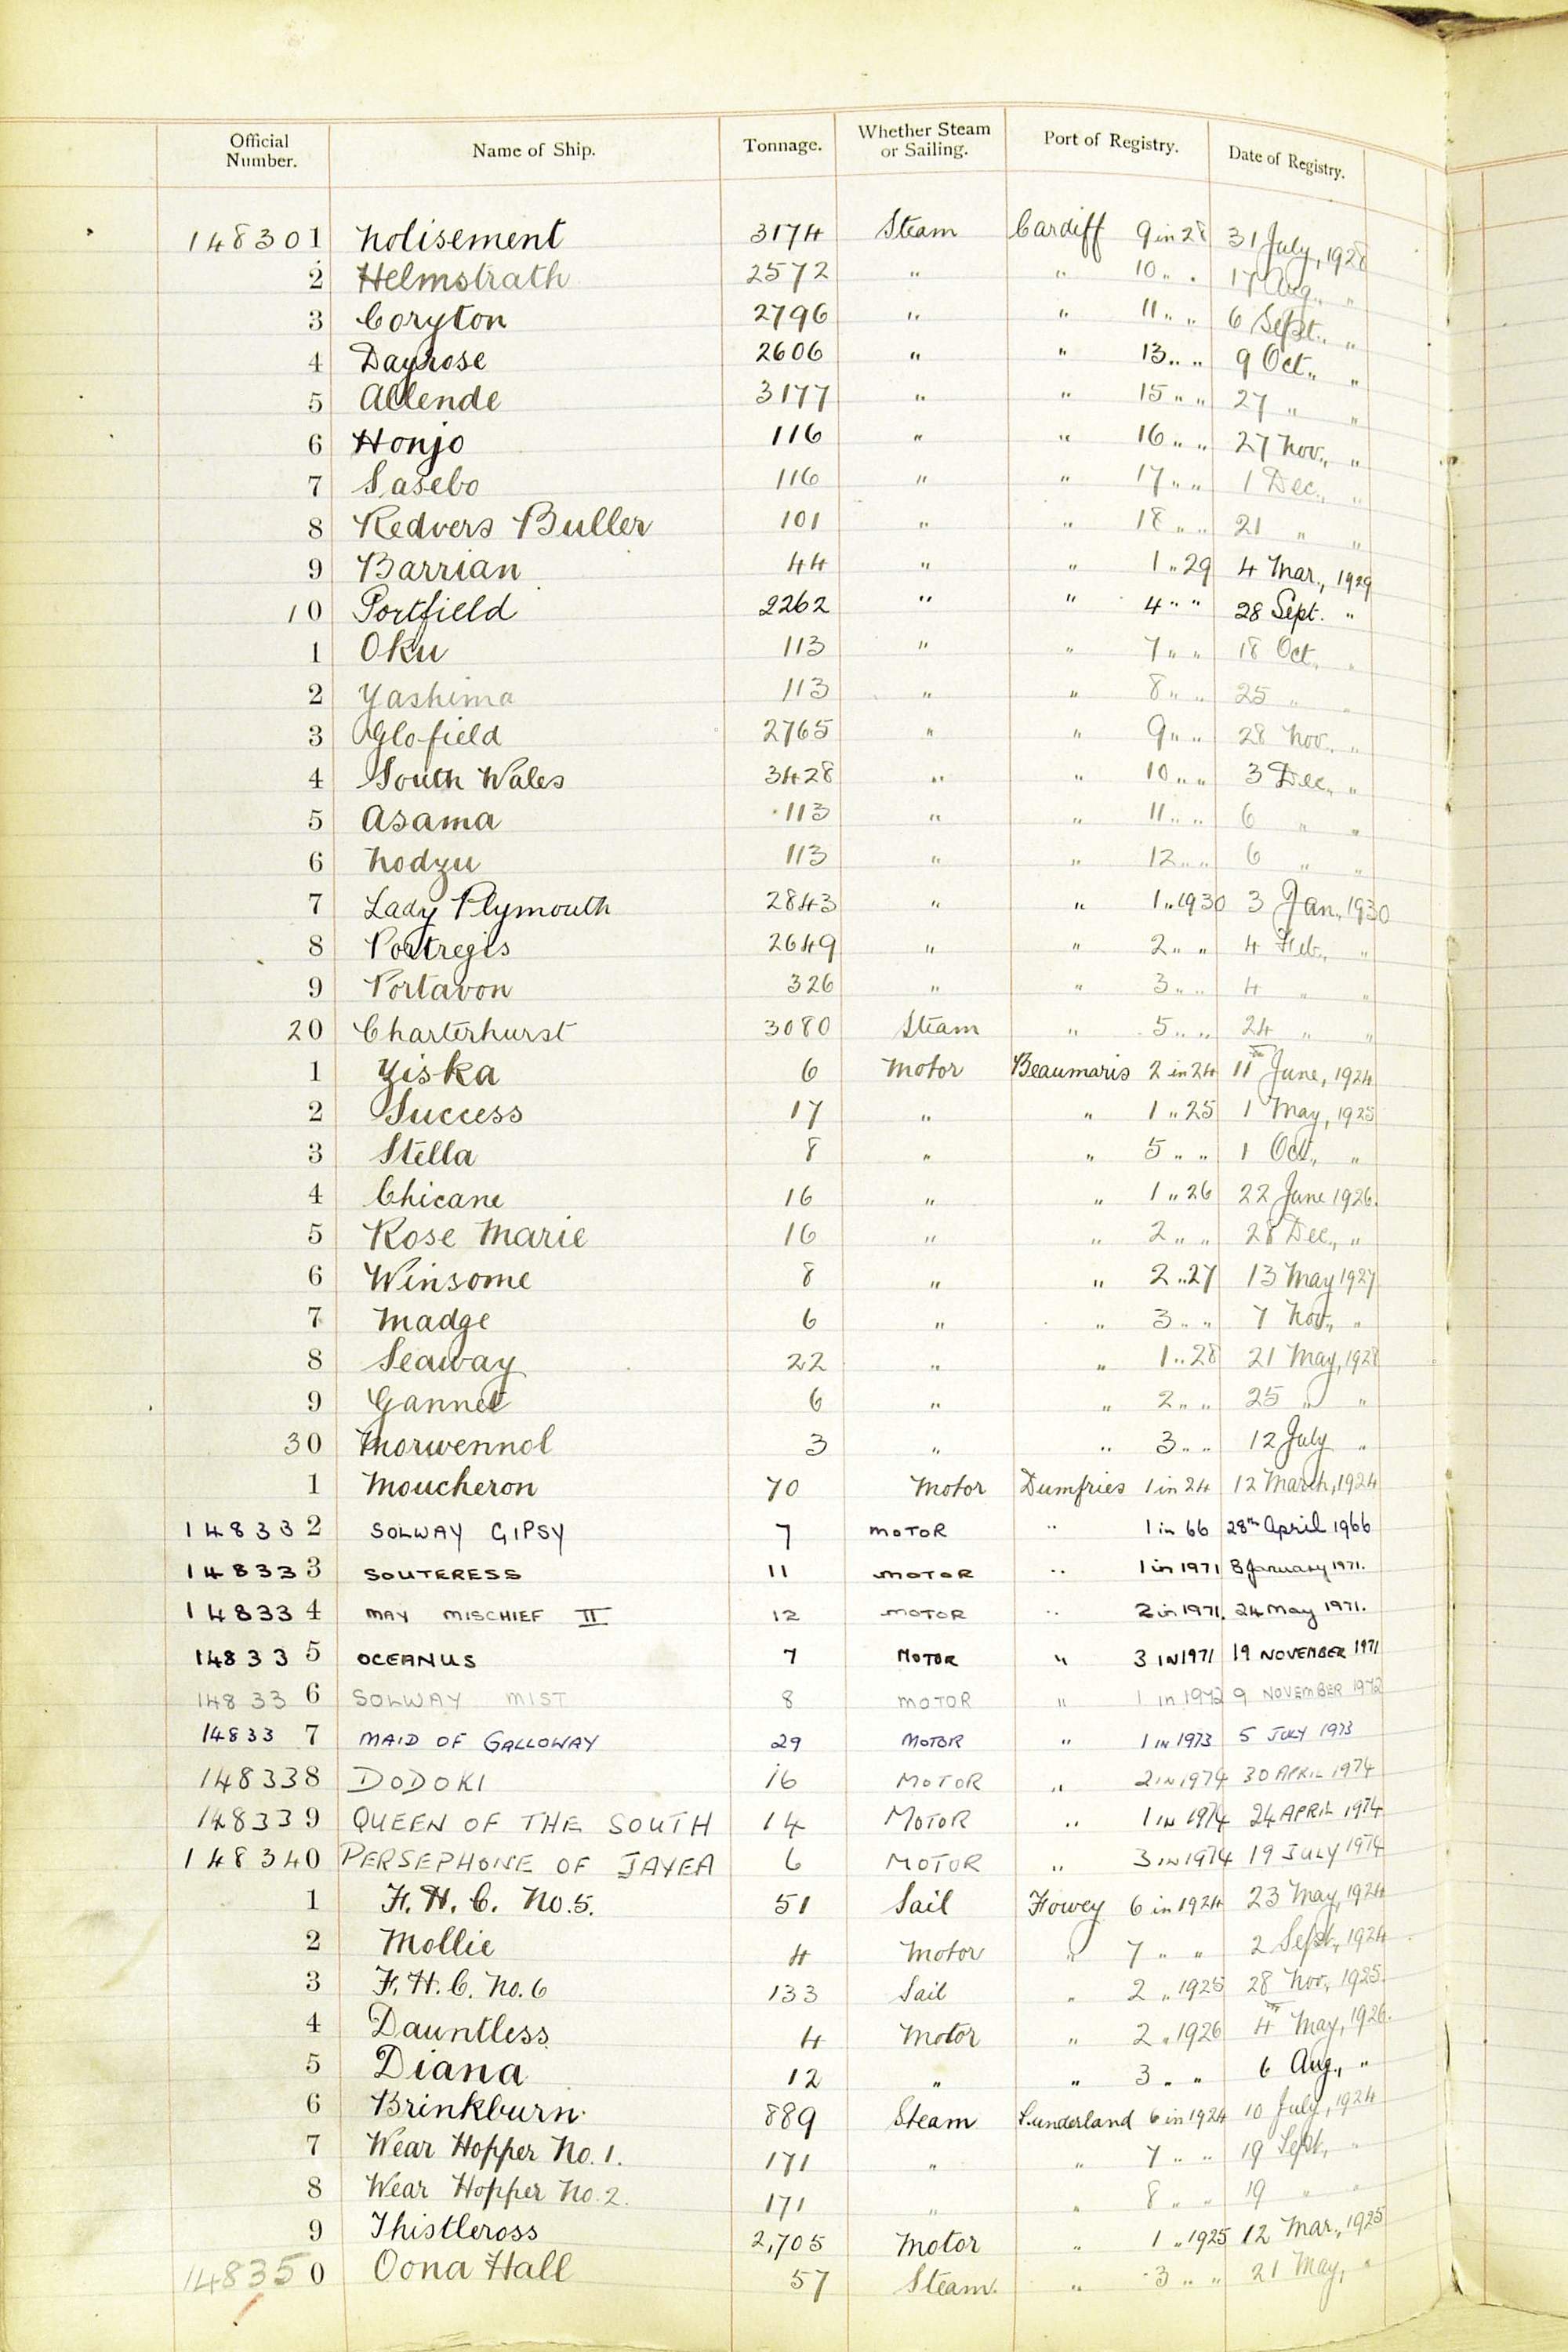 Official Number. Name of Ship. Tonnage. Whether Steam or Sailing. Port of Registry. Date of Registry.
148301 Nolisement 3174 Steam Cardiff 9 in 28 31 July, 1928
2 Helmstrath 2572 " " 10 " " 17 Aug., "
3 Coryton 2796 " " 11 " " 6 Sept., "
4 Dayrose 2606 " " 13 " " 9 Oct., "
5 Allende 3177 " " 15 " " 27 " "
6 Honjo 116 " " 16 " " 27 Nov., "
7 Sasebo 116 " " 17 " " 1 Dec., "
8 Redvers Buller 101 " " 18 " " 21 " "
9 Barrian 44 " " 1 " 29 4 Mar., 1929
10 Portfield 2262 " " 4 " " 28 Sept. "
1 Oku 113 " " 7 " " 18 Oct., "
2 Yashima 113 " " 8 " " 25 " "
3 Glofield 2765 " " 9 " " 28 Nov., "
4 South Wales 3428 " " 10 " " 3 Dec., "
5 Asama 113 " " 11 " " 6 " "
6 Nodzu 113 " " 12 " " 6 " "
7 Lady Plymouth 2843 " " 1 " 1930 3 Jan., 1930
8 Portregis 2649 " " 2 " " 4 Feb., "
9 Portavon 326 " " 3 " " 4 " "
20 Charterhurst 3080 Steam " 5 " " 24 " "
1 Ziska 6 Motor Beaumaris 2 in 24 11th June, 1924
2 Success 17 " " 1 " 25 1 May, 1925
3 Stella 8 " " 5 " " 1 Oct., "
4 Chicane 16 " " 1 " 26 22 June 1926.
5 Rose Marie 16 " " 2 " " 28 Dec., "
6 Winsome 8 " " 2 " 27 13 May 1927
7 Madge 6 " " 3 " " 7 Nov., "
8 Seaway 22 " " 1 " 28 21 May, 1928
9 Gannet 6 " " 2 " " 25 " "
30 Morwennol 3 " " 3 " " 12 July "
1 Moucheron 70 Motor Dumfries 1 in 24 12 March, 1924
148332 SOLWAY GIPSY 7 MOTOR " 1 in 66 28th April 1966
148333 SOUTERESS 11 MOTOR " 1 in 1971 8 January 1971.
148334 MAY MISCHIEF II 12 MOTOR " 2 in 1971. 24 May 1971.
148335 OCEANUS 7 MOTOR " 3 IN 1971 19 NOVEMBER 1971
148336 SOLWAY MIST 8 MOTOR " 1 in 1972 9 NOVEMBER 1972
148337 MAID OF GALLOWAY 29 MOTOR " 1 IN 1973 5 JULY 1973
148338 DODOKI 16 MOTOR " 2 IN 1974 30 APRIL 1974
148339 QUEEN OF THE SOUTH 14 MOTOR " 1 IN 1974 24 APRIL 1974
148340 PERSEPHONE OF JAYEA 6 MOTOR " 3 IN 1974 19 JULY 1974
1 F. H. C. No. 5. 51 Sail Fowey 6 in 1924 23 May, 1924
2 Mollie 4 Motor " 7 " " 2 Sept., 1924
3 F. H. C. No. 6 133 Sail " 2 " 1925 28 Nov., 1925.
4 Dauntless 4 Motor " 2 " 1926 4th May, 1926.
5 Diana 12 " " 3 " " 6 Aug., "
6 Brinkburn 889 Steam Sunderland 6 in 1924 10 July, 1924
7 Wear Hopper No. 1. 171 " " 7 " " 19 Sept., "
8 Wear Hopper No. 2. 171 " " 8 " " 19 " "
9 Thistleross 2,705 Motor " 1 " 1925 12 Mar., 1925
148350 Oona Hall 57 Steam. " 3 " " 21 May, "